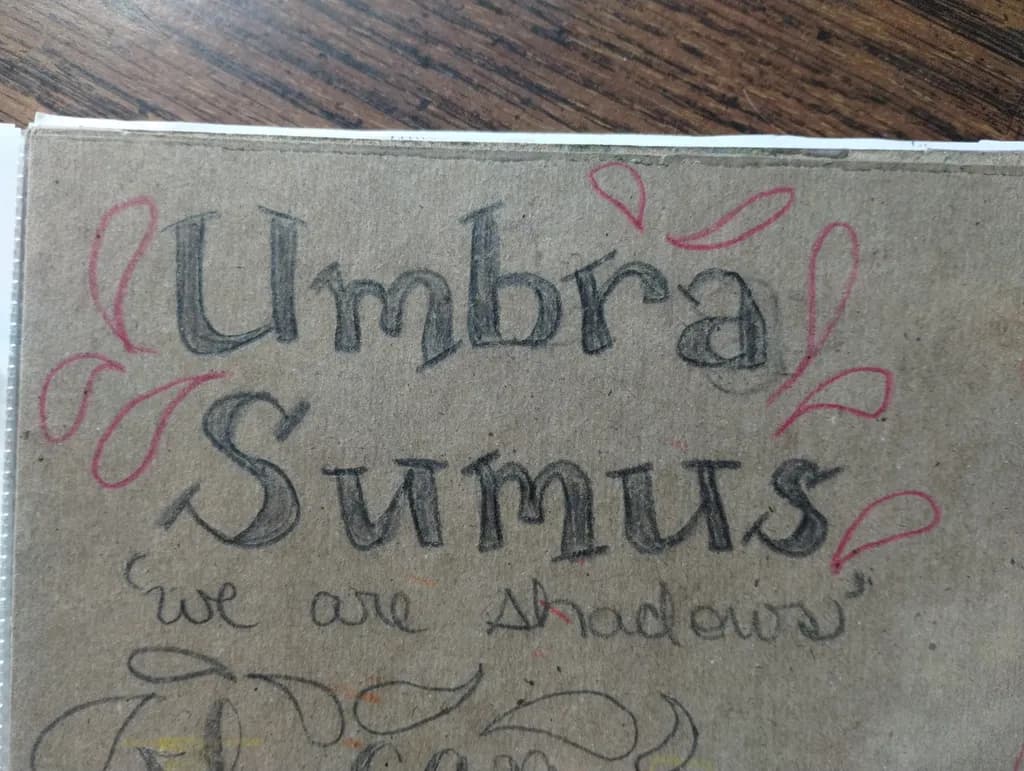 Umbra
Sumus
"we are shadows"
I can